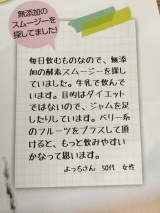 無添加の
スムージーを
探してました!
毎日飲むものなので、無添
加の酵素スムージーを探し
ていました。牛乳で飲んで
います。目的はダイエット
ではないので、ジャムを足
したりしています。ベリー系
のフルーツをプラスして頂
けると、もっと飲みやすい
かなって思います。
よっちさん 50代 女性